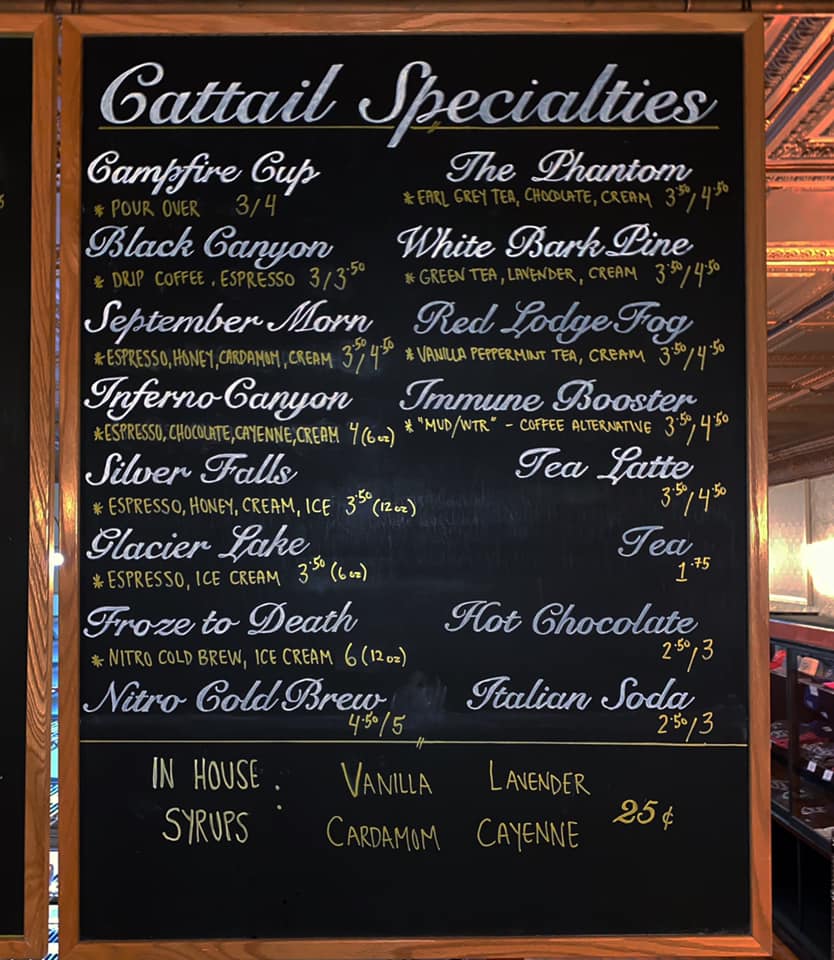 Cattail Specialties
Campfire Cup
* POUR OVER 3/4
Black Canyon
* DRIP COFFEE, ESPRESSO 3/3.50
September Morn
* ESPRESSO, HONEY, CARDAMOM, CREAM 3.50/4.50
Inferno Canyon
* ESPRESSO, CHOCOLATE, CAYENNE, CREAM 4 (6 oz)
Silver Falls
* ESPRESSO, HONEY, CREAM, ICE 3.50 (12 oz)
Glacier Lake
* ESPRESSO, ICE CREAM 3.50 (6 oz)
Froze to Death
* NITRO COLD BREW, ICE CREAM 6 (12 oz)
Nitro Cold Brew
4.50/5
The Phantom
* EARL GREY TEA, CHOCOLATE, CREAM 3.50/4.50
White Bark Pine
* GREEN TEA, LAVENDER, CREAM 3.50/4.50
Red Lodge Fog
* VANILLA PEPPERMINT TEA, CREAM 3.50/4.50
Immune Booster
* "MUD/WTR" - COFFEE ALTERNATIVE 3.50/4.50
Tea Latte
3.50/4.50
Tea
1.75
Hot Chocolate
2.50/3
Italian Soda
2.50/3
IN HOUSE :
SYRUPS
VANILLA LAVENDER
CARDAMOM CAYENNE
25¢